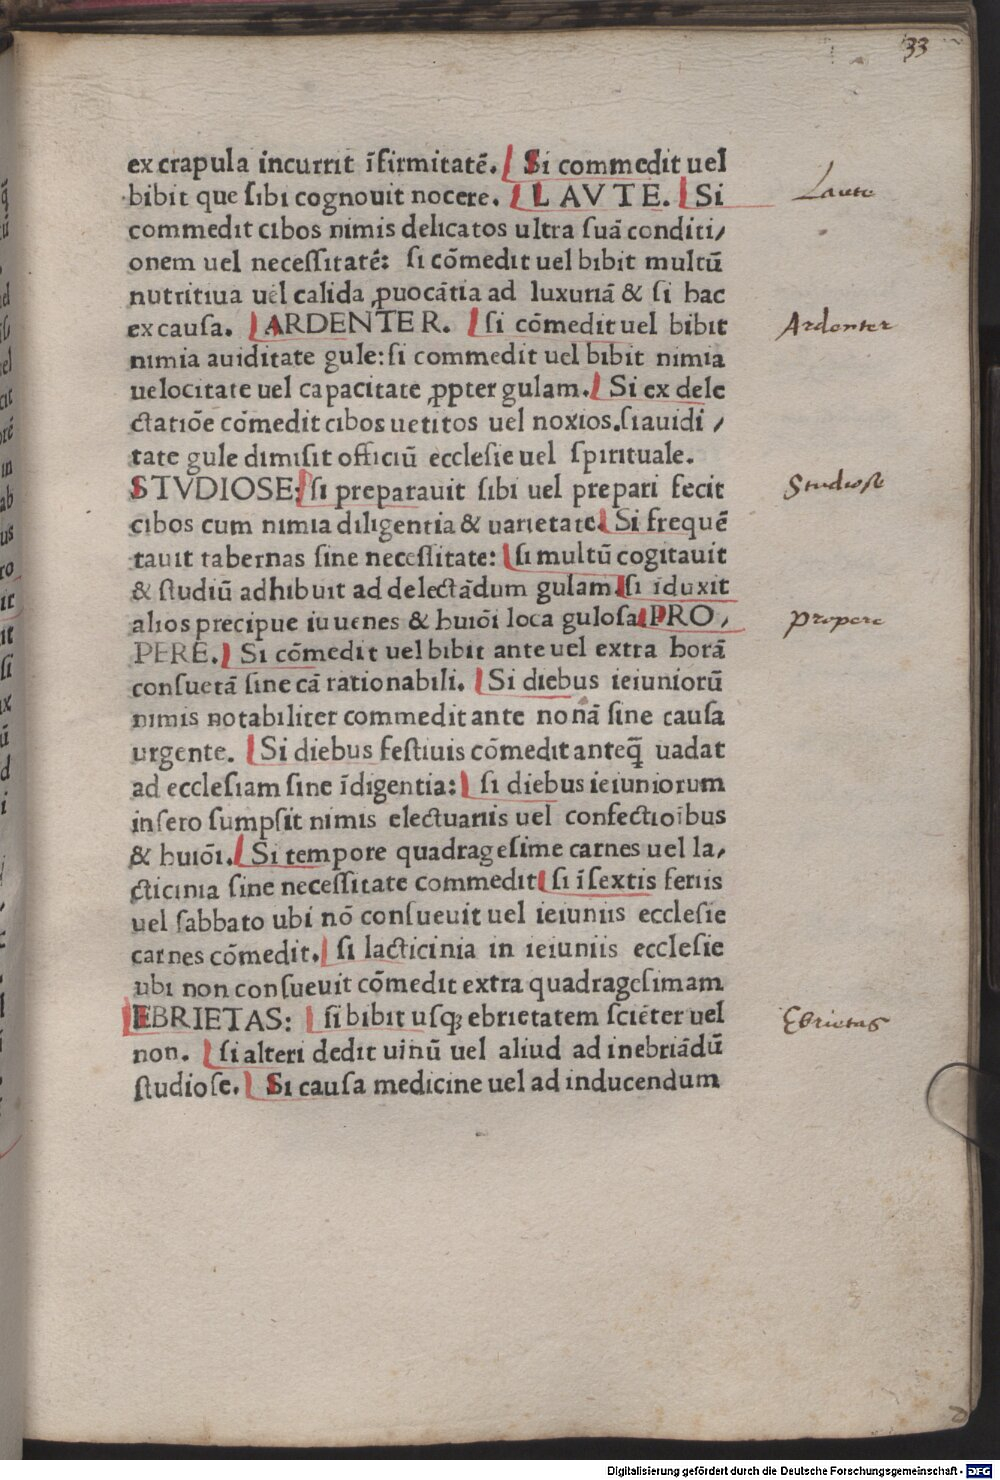 33
ex crapula incurrit īfirmitatē. Si commedit uel
bibit que sibi cognouit nocere. LAVTE. Si
Laute
commedit cibos nimis delicatos ultra suā conditi/
onem uel necessitatē: si cōmedit uel bibit multū
nutritiua uel calida ꝓuocātia ad luxuriā & si hac
ex causa. ARDENTER. si cōmedit uel bibit
Ardenter
nimia auiditate gule: si commedit uel bibit nimia
uelocitate uel capacitate ꝓpter gulam. Si ex dele
ctatiōe cōmedit cibos uetitos uel noxios. si auidi /
tate gule dimisit officiū ecclesie uel spirituale.
STVDIOSE: si preparauit sibi uel prepari fecit
Studiose
cibos cum nimia diligentia & uarietate. Si frequē
tauit tabernas sine necessitate: si multū cogitauit
& studiū adhibuit ad delectādum gulam. si īduxit
alios precipue iuuenes & huiōi loca gulosa. PRO/
propere
PERE. Si cōmedit uel bibit ante uel extra horā
consuetā sine cā rationabili. Si diebus ieiuniorū
nimis notabiliter commedit ante nonā sine causa
urgente. Si diebus festiuis cōmedit anteq̄ uadat
ad ecclesiam sine īdigentia: si diebus ieiuniorum
in sero sumpsit nimis electuariis uel confectioībus
& huiōi. Si tempore quadragesime carnes uel la/
cticinia sine necessitate commedit si ī sextis feriis
uel sabbato ubi nō consueuit uel ieiuniis ecclesie
carnes cōmedit. si lacticinia in ieiuniis ecclesie
ubi non consueuit cōmedit extra quadragesimam
EBRIETAS: si bibit usqꝫ ebrietatem sciēter uel
Ebrietas
non. si alteri dedit uinū uel aliud ad inebriādū
studiose. Si causa medicine uel ad inducendum
Digitalisierung gefördert durch die Deutsche Forschungsgemeinschaft - DFG